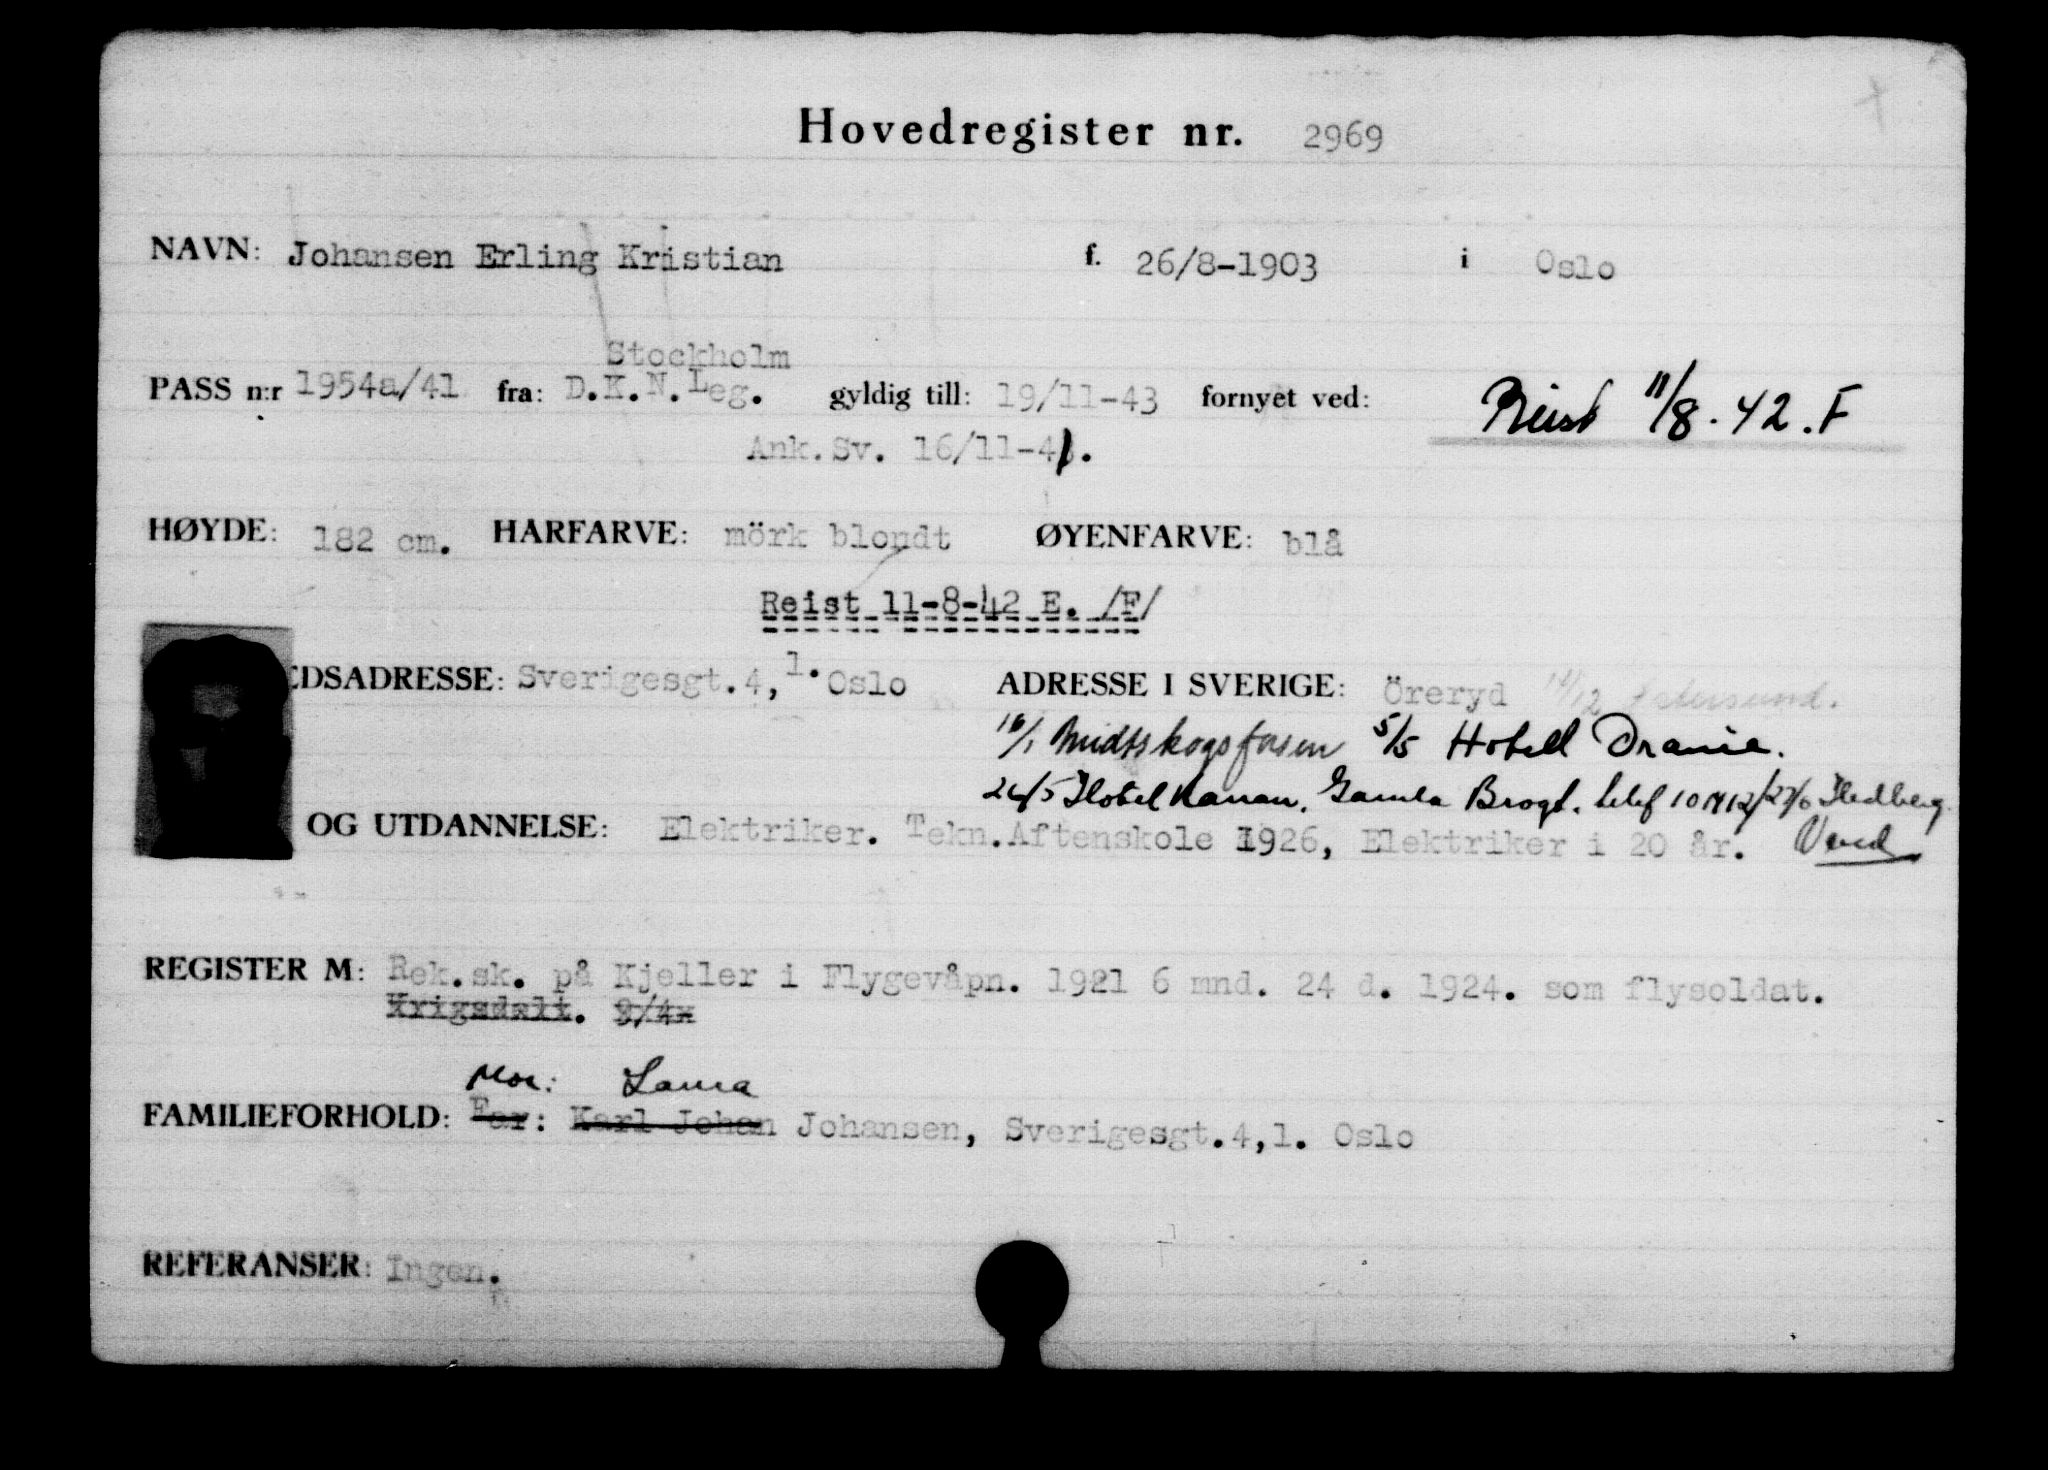 Hovedregister nr. 2969
NAVN: Johansen Erling Kristian f. 26/8-1903 i Oslo
Stockholm
PASS n:r 1954a/41 fra: D.K.N.Leg. gyldig till: 19/11-43 fornyet ved: Reist 11/8.42.F
Ank.Sv. 16/11-41.
HØYDE: 182 cm. HARFARVE: mörk blondt ØYENFARVE: blå
Reist 11-8-42 E. /F/
EDSADRESSE: Sverigesgt.4, 1. Oslo ADRESSE I SVERIGE: Öreryd Östersund.
16/1 Midtskogsfosen 5/5 Hotell Orania.
Hotel Kanan. Gamla Brogt. telf 27/6 Hedberg.
OG UTDANNELSE: Elektriker. Tekn.Aftenskole 1926, Elektriker i 20 år. Vend
REGISTER M: Rek.sk. på Kjeller i Flygevåpn. 1921 6 mnd. 24 d. 1924. som flysoldat.
Krigsdelt. 9/4x
Mor: Laura
FAMILIEFORHOLD: Far: Karl Johan Johansen, Sverigesgt.4,1. Oslo
REFERANSER: Ingen.